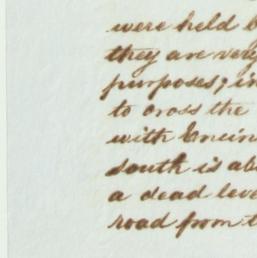 were held b
they are very
purposes; in
to cross the
with Encin
south is ab
a dead leve
road from t